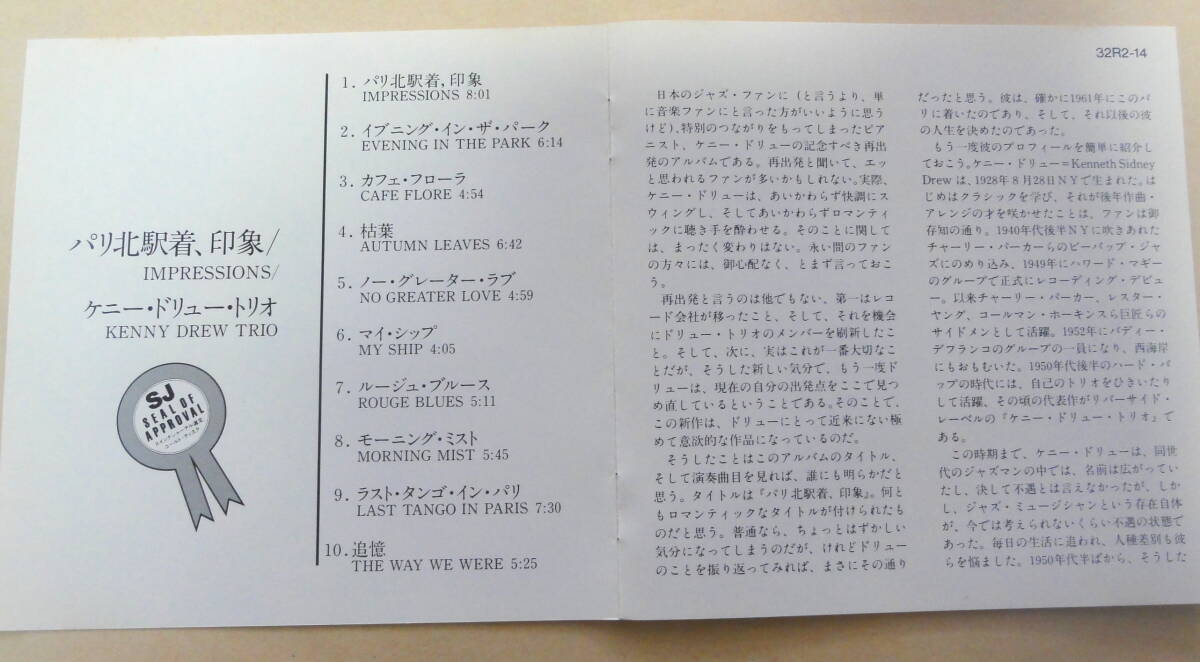 パリ北駅着、印象/
IMPRESSIONS/
ケニー・ドリュー・トリオ
KENNY DREW TRIO
SJ
SEAL OF
APPROVAL
1. パリ北駅着、印象
IMPRESSIONS 8:01
2. イブニング・イン・ザ・パーク
EVENING IN THE PARK 6:14
3. カフェ・フローラ
CAFE FLORE 4:54
4. 枯葉
AUTUMN LEAVES 6:42
5. ノー・グレーター・ラブ
NO GREATER LOVE 4:59
6. マイ・シップ
MY SHIP 4:05
7. ルージュ・ブルース
ROUGE BLUES 5:11
8. モーニング・ミスト
MORNING MIST 5:45
9. ラスト・タンゴ・イン・パリ
LAST TANGO IN PARIS 7:30
10. 追憶
THE WAY WE WERE 5:25
32R2-14
日本のジャズ・ファンに(と言うより、単
に音楽ファンにと言った方がいいように思う
けど)、特別のつながりをもってしまったピア
ニスト、ケニー・ドリューの記念すべき再出
発のアルバムである。再出発と聞いて、エッ
と思われるファンが多いかもしれない。実際、
ケニー・ドリューは、あいかわらず快調にス
ウィングし、そしてあいかわらずロマンティ
ックに聴き手を酔わせる。そのことに関して
は、まったく変わりはない。永い間のファン
の方々には、御心配なく、とまず言っておこ
う。
再出発と言うのは他でもない、第一はレコ
ード会社が移ったこと、そして、それを機会
にドリュー・トリオのメンバーを刷新したこ
と。そして、次に、実はこれが一番大切なこ
とだが、そうした新しい気分で、もう一度ド
リューは、現在の自分の出発点をここで見つ
め直しているということである。そのことで、
この新作は、ドリューにとって近来にない極
めて意欲的な作品になっているのだ。
そうしたことはこのアルバムのタイトル、
そして演奏曲目を見れば、誰にも明らかだと
思う。タイトルは『パリ北駅着、印象』。何と
もロマンティックなタイトルが付けられたも
のだと思う。普通なら、ちょっとはずかしい
気分になってしまうのだが、けれどドリュー
のことを振り返ってみれば、まさにその通り
だったと思う。彼は、確かに1961年にこのパ
リに着いたのであり、そして、それ以後の彼
の人生を決めたのであった。
もう一度彼のプロフィールを簡単に紹介し
ておこう。ケニー・ドリュー=Kenneth Sidney
Drewは、1928年8月28日NYで生まれた。は
じめはクラシックを学び、それが後年作曲・
アレンジの才を咲かせたことは、ファンは御
存知の通り。1940年代後半NYに吹きあれた
チャーリー・パーカーらのビーバップ・ジャ
ズにのめり込み、1949年にハワード・マギー
のグループで正式にレコーディング・デビュ
ー。以来チャーリー・パーカー、レスター・
ヤング、コールマン・ホーキンスら巨匠らの
サイドメンとして活躍。1952年にバディー・
デフランコのグループの一員になり、西海岸
にもおもむいた。1950年代後半のハード・バ
ップの時代には、自己のトリオをひきいたり
して活躍、その頃の代表作がリバーサイド・
レーベルの『ケニー・ドリュー・トリオ』で
ある。
この時期まで、ケニー・ドリューは、同世
代のジャズマンの中では、名前は広がってい
たし、決して不遇とは言えなかったが、しか
し、ジャズ・ミュージシャンという存在自体
が、今では考えられないくらい不遇の状態で
あった。毎日の生活に追われ、人種差別も彼
らを悩ました。1950年代半ばから、そうした